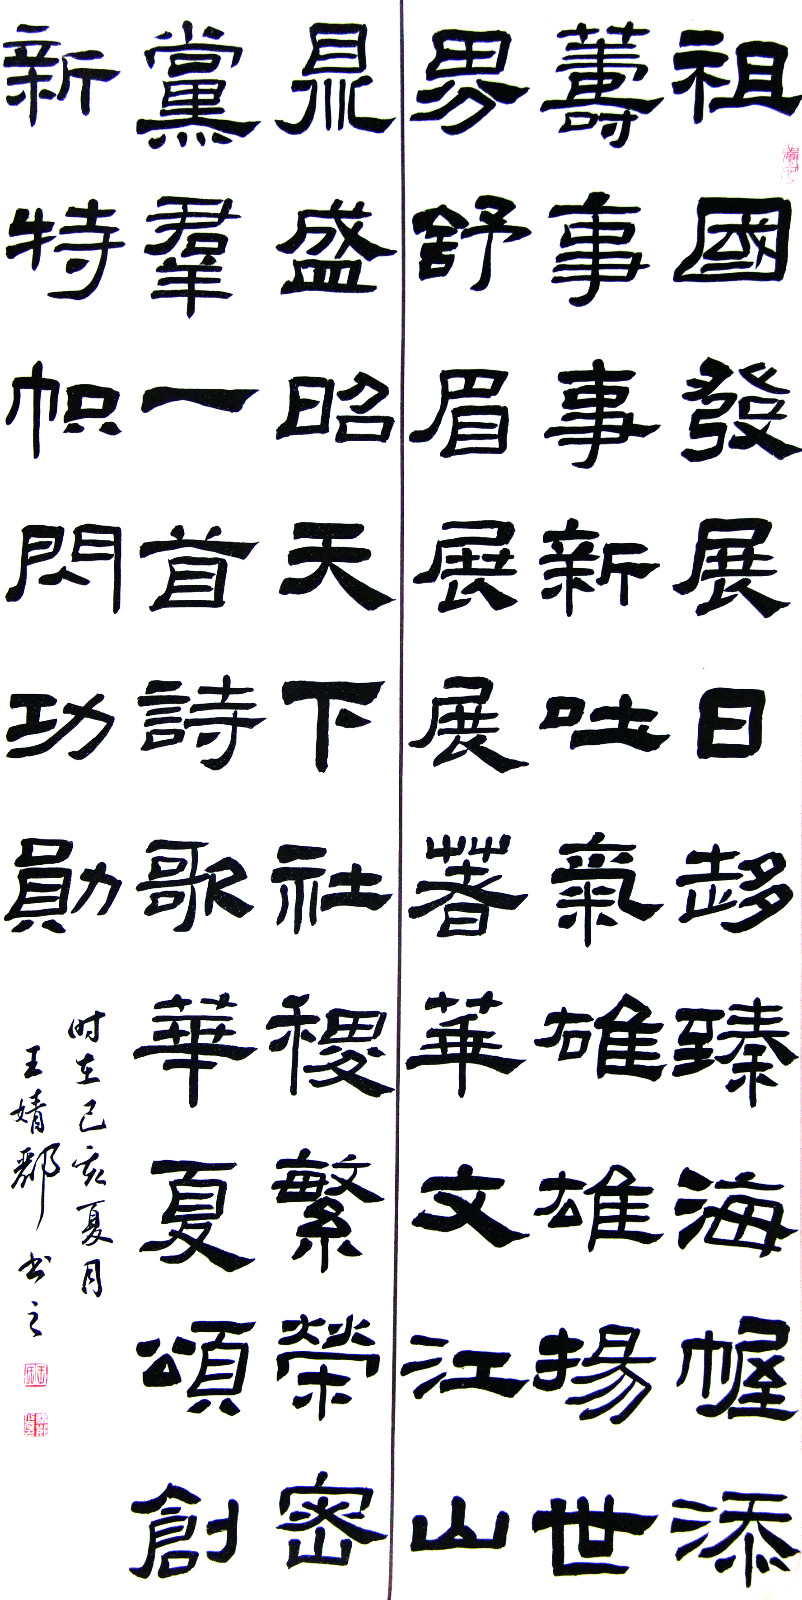 祖國發展日趍臻海幄添
籌事事新吐氣雄雄揚世
界舒眉展展著華文江山
鼎盛昭天下社稷繁榮密
黨羣一首詩歌華夏頌創
新特帜閃功勛
时在己亥夏月
王婧书之